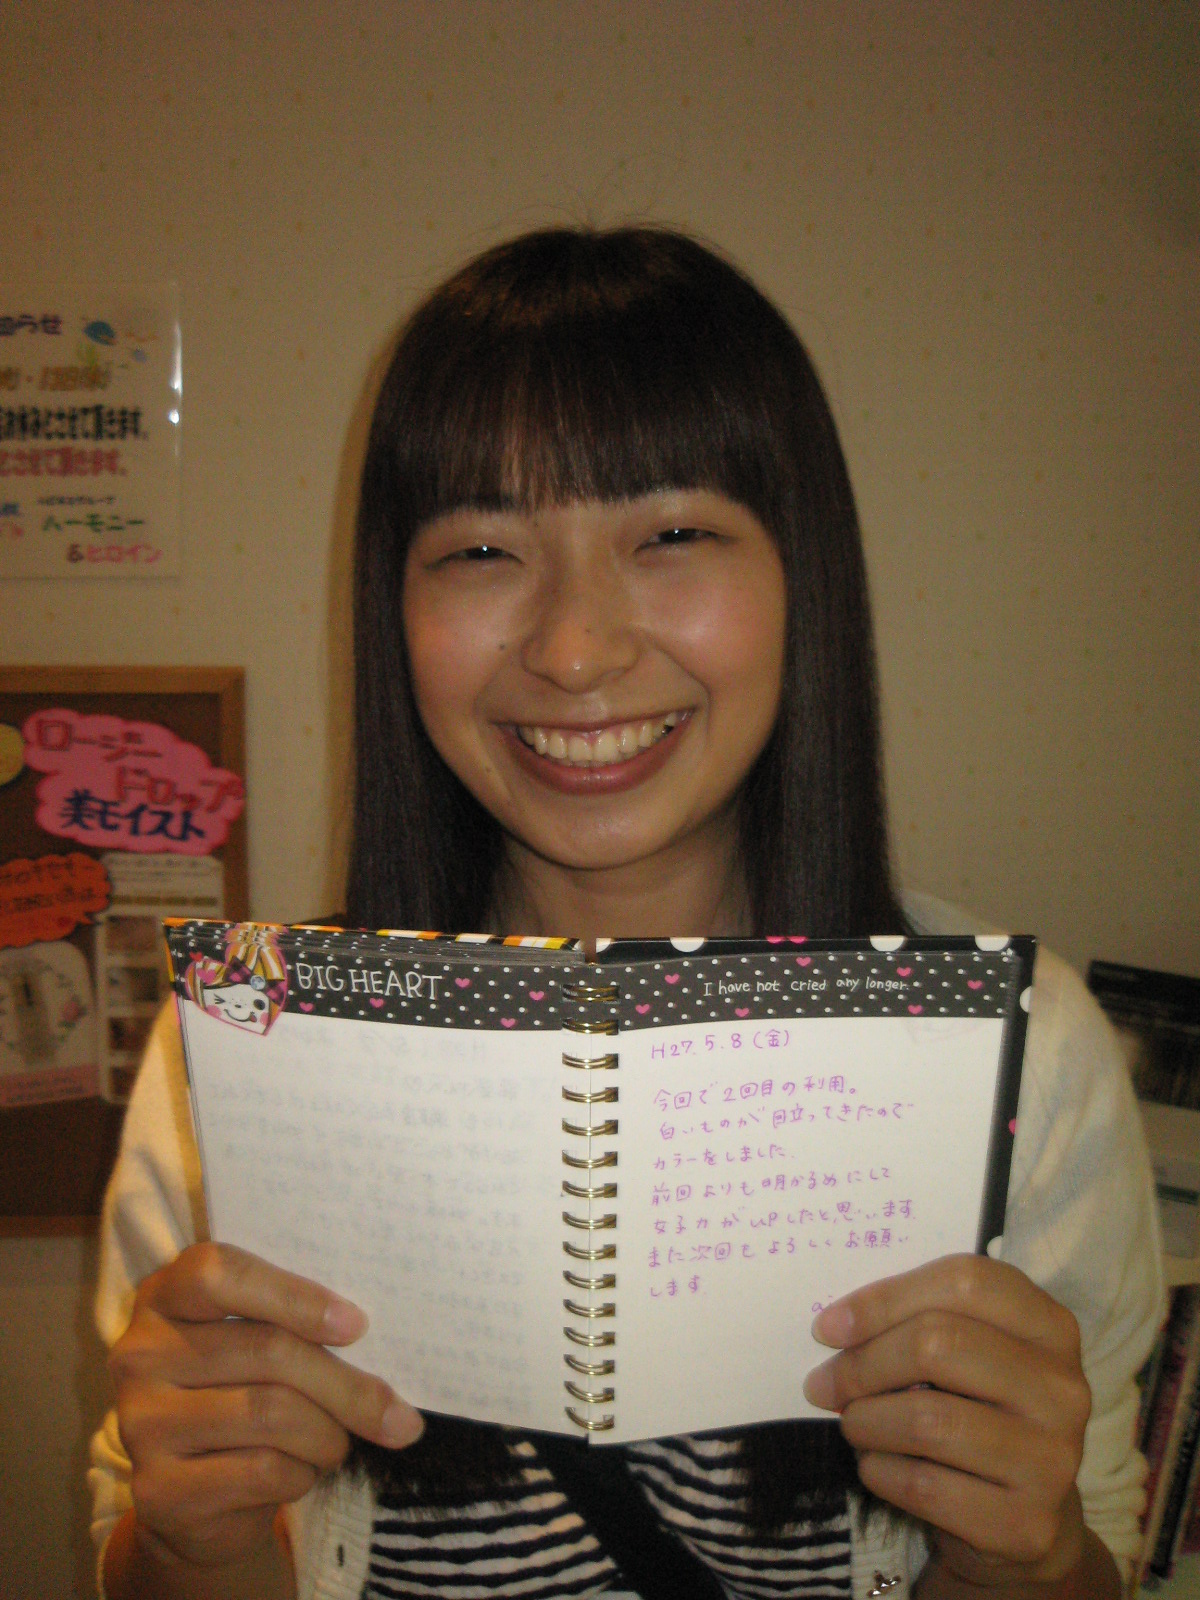 知らせ
お休みとさせて頂きます。
とさせて頂きます。
ハーモニー
&ヒロイン
ロージー
ドロップ
美モイスト
BIG HEART
I have not cried any longer.
H27.5.8(金)
今回で2回目の利用。
白いものが目立ってきたので
カラーをしました。
前回よりも明かるめにして
女子力がupしたと思います。
また次回もよろしくお願い
します。